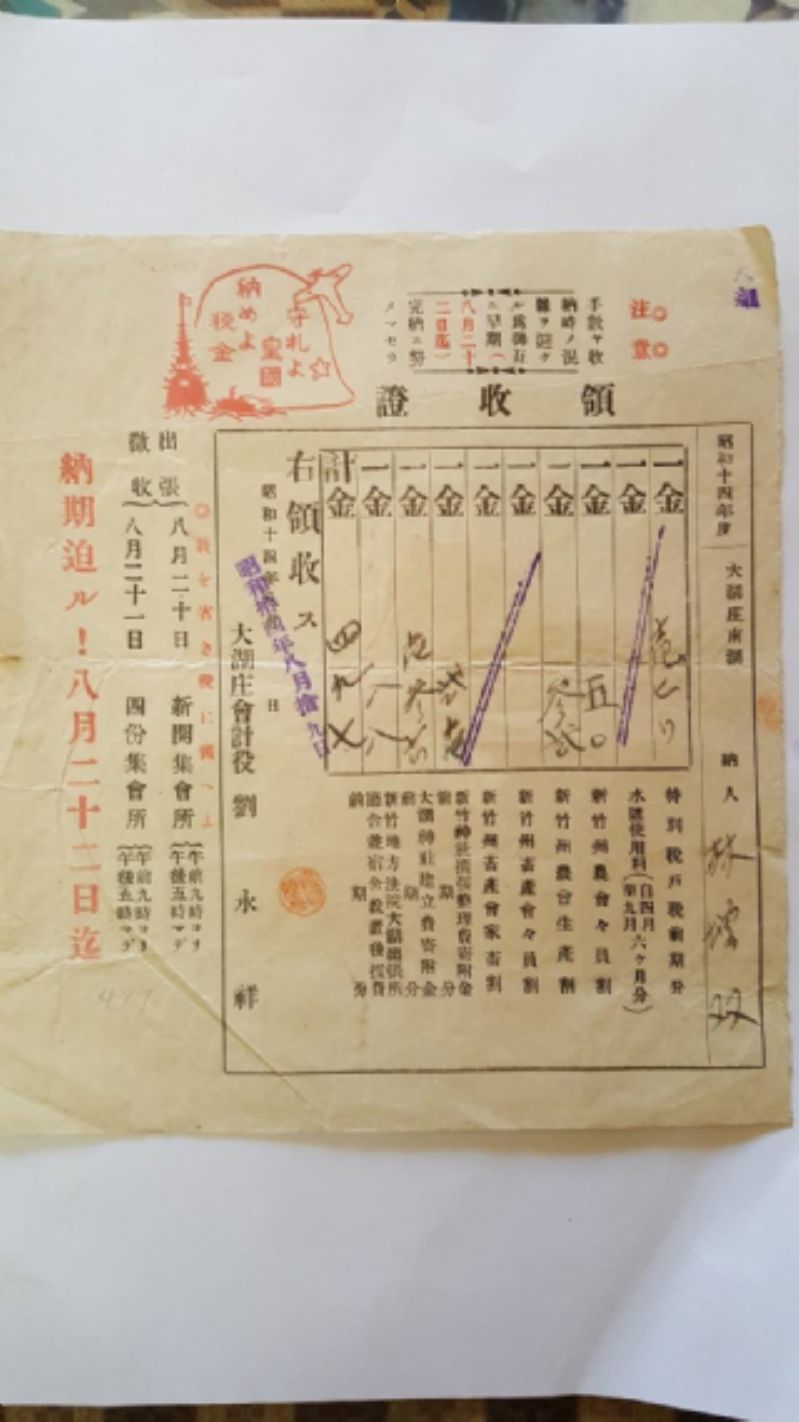 注意
手數ヤ收
納時ノ混
雜ヲ避ク
ル爲御互
ニ早期（
八月二十
二日迄）
完納ニ努
メマセウ
守れよ
皇國
納めよ
税金
領收證
昭和十四年度
大湖庄南湖
納人
林
双
一金
特別税戶税前期分
一金
水道使用料（自四月至九月六ヶ月分）
一金 五〇
新竹州農會々員割
一金
新竹州農會生產割
一金
新竹州畜產會々員割
一金
新竹州畜產會家畜割
一金
新竹神社 整理費寄附金
前期分
一金
大湖神社建立費寄附金
前期分
一金 八八
新竹地方法院大湖出張所
納期分
計金 四九七
右領收ス
昭和十四年 日
昭和拾四年八月拾九日
大湖庄會計役 劉永祥
出張
徵收
八月二十日 新開集會所（午前九時ヨリ午後五時マデ）
八月二十一日 四份集會所（午前九時ヨリ午後五時マデ）
納期迫ル！八月二十二日迄
497